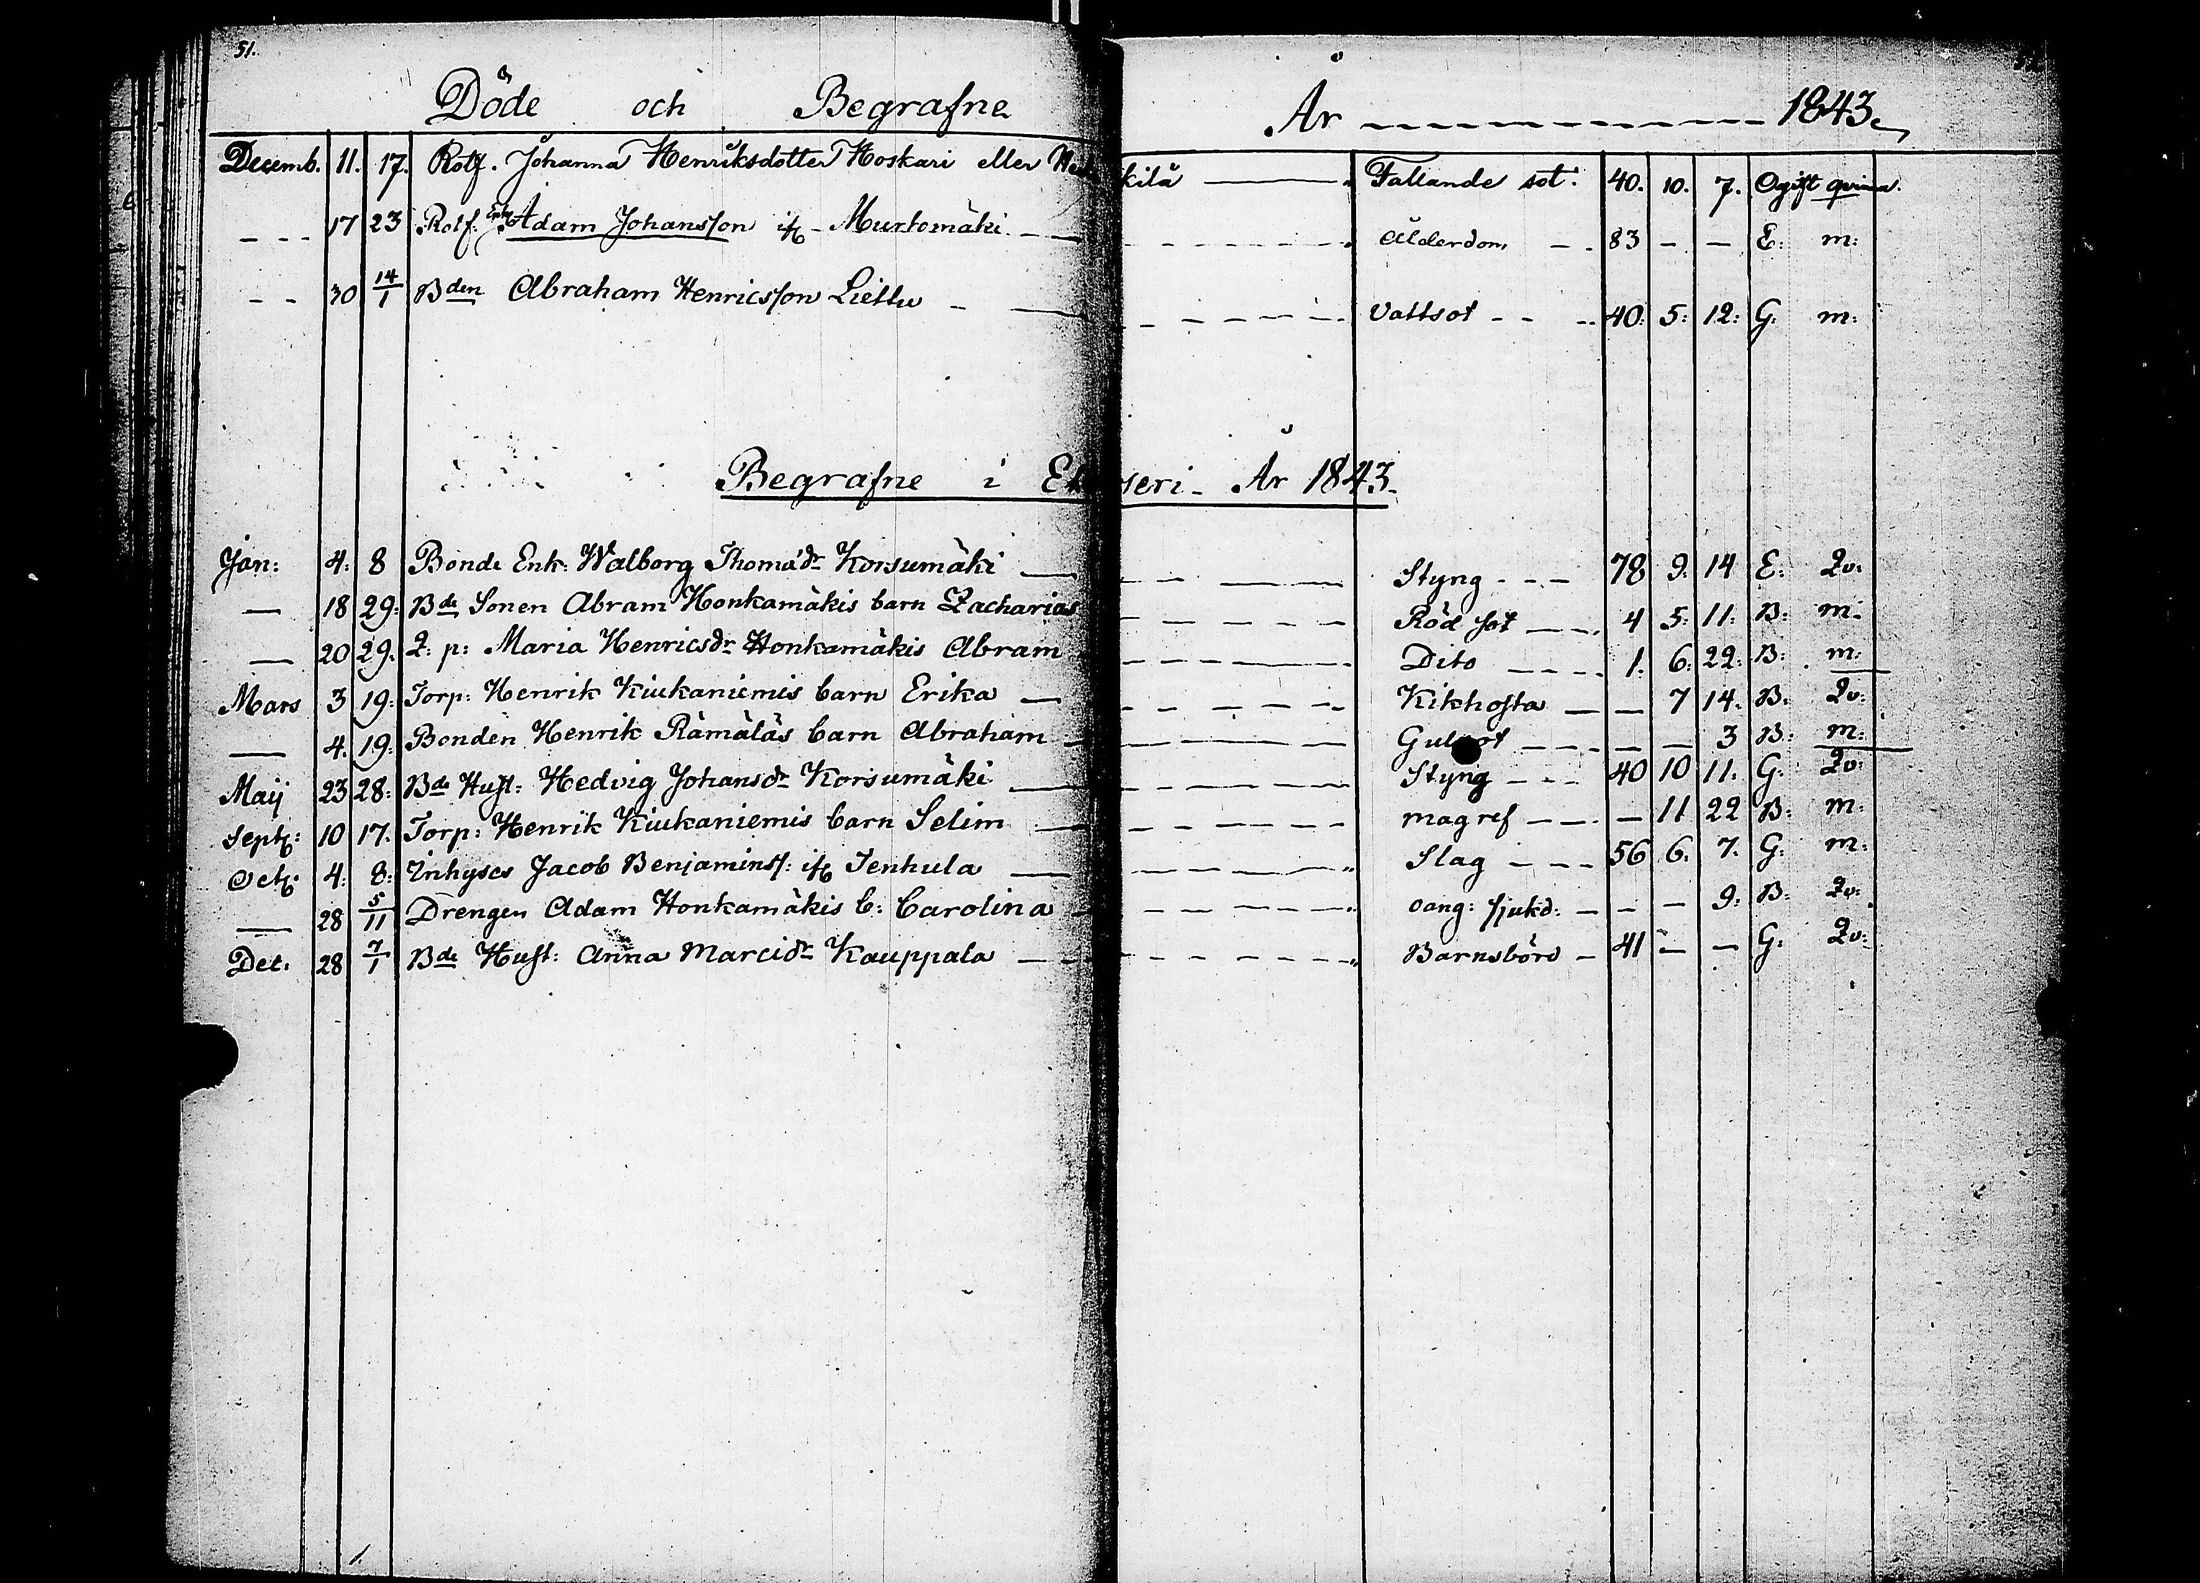 51.
Döde och Begrafne År 1843.
Decemb. 11. 17. Rotf. Johanna Henriksdotter Hoskari eller kilä Fallande sot. 40. 10. 7. Ogift qvinna.
17 23 Rotf. Enkl. Adam Johansson ifr. Murtomäki Ålderdom 83 - - E: m:
30 14/1 Bden Abraham Henricsson Liettu Vattsot 40: 5: 12: G: m:
Begrafne i Etseri År 1843.
Jan: 4: 8 Bonde Enk: Walborg Thomædr Korsumäki Styng 78 9. 14 E: Qv:
18 29: Bde Sonen Abram Honkamäkis barn Zacharias Röd sot 4 5: 11: B: m.
20 29. Q: p: Maria Henricsdr Honkamäkis Abram Dito 1. 6: 22: B: m:
Mars 3 19: Torp: Henrik Kiukaniemis barn Erika Kikhosta — 7 14. B: Qv:
4. 19. Bonden Henrik Rämäläs barn Abraham Gulsot — — 3 B: m:
Maij 23 28: Bde Hust: Hedvig Johansdr Korsumäki Styng 40 10 11. G: Qv:
Septb: 10 17. Torp: Henrik Kiukaniemis barn Selim magref — 11 22 B: m:
Octb: 4: 8: Inhyses Jacob Benjamins: ifr Tenhula Slag 56 6. 7. G: m:
28 5/11 Drengen Adam Honkamäkis b: Carolina oang: sjukd: — — 9. B: Qv:
Det. 28 7/1 Bde Hust: Anna Marcidr Kauppala Barnsbörd 41 — — G: Qv: